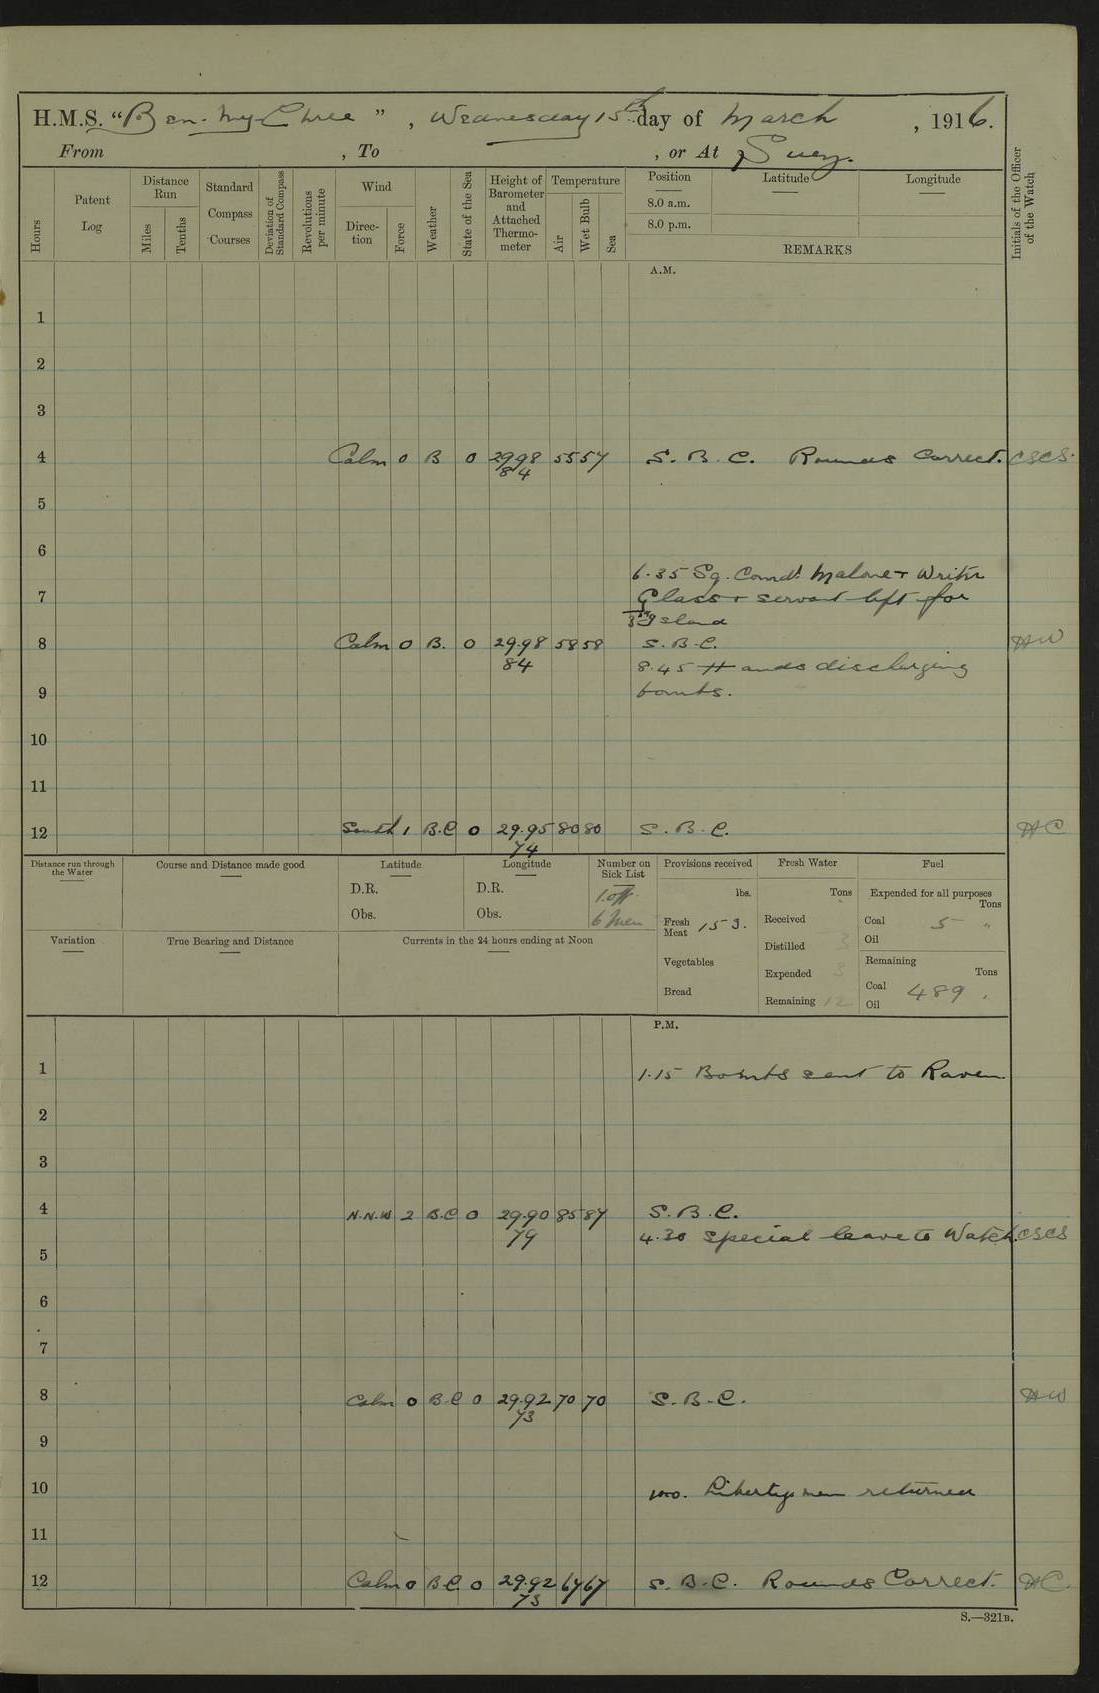 H.M.S. “Ben-My-Chree”, Wednesday 15th day of March, 1916.
From , To , or At Suez.
Hours
Patent Log
Distance Run
Miles
Tenths
Standard Compass Courses
Deviation of Standard Compass
Revolutions per minute
Wind
Direction
Force
Weather
State of the Sea
Height of Barometer and Attached Thermometer
Temperature
Air
Wet Bulb
Sea
Position
8.0 a.m.
8.0 p.m.
Latitude
Longitude
REMARKS
Initials of the Officer of the Watch
A.M.
1
2
3
4 Calm 0 B 0 29.98 55 57 S. B. C. Rounds Correct. CSCS.
84
5
6
6.35 Sq. Comdr Malone + Writer
7 Glass + servant left for
Island
8 Calm 0 B. 0 29.98 58 58 S. B. C. HW
84 8.45 Hands discharging
9 bombs.
10
11
12 South 1 B.C 0 29.95 80 80 S. B. C. HC
74
Distance run through the Water
Course and Distance made good
Latitude
D.R.
Obs.
Longitude
D.R.
Obs.
Number on Sick List
1 off
6 Men
Provisions received
lbs.
Fresh Meat 153.
Vegetables
Bread
Fresh Water
Tons
Received
Distilled 3
Expended 3
Remaining 12
Fuel
Expended for all purposes
Tons
Coal 5
Oil
Remaining
Tons
Coal 489
Oil
Variation
True Bearing and Distance
Currents in the 24 hours ending at Noon
P.M.
1 1.15 Bombs sent to Raven
2
3
4 N.N.W 2 B.C 0 29.90 85 87 S. B. C.
79 4.30 Special leave to Watch. CSCS
5
6
7
8 Calm 0 B.C 0 29.92 70 70 S. B. C. HW
73
9
10 10.0. Liberty men returned
11
12 Calm 0 B.C. 0 29.92 67 67 S. B. C. Rounds Correct. HC.
73
S.—321B.